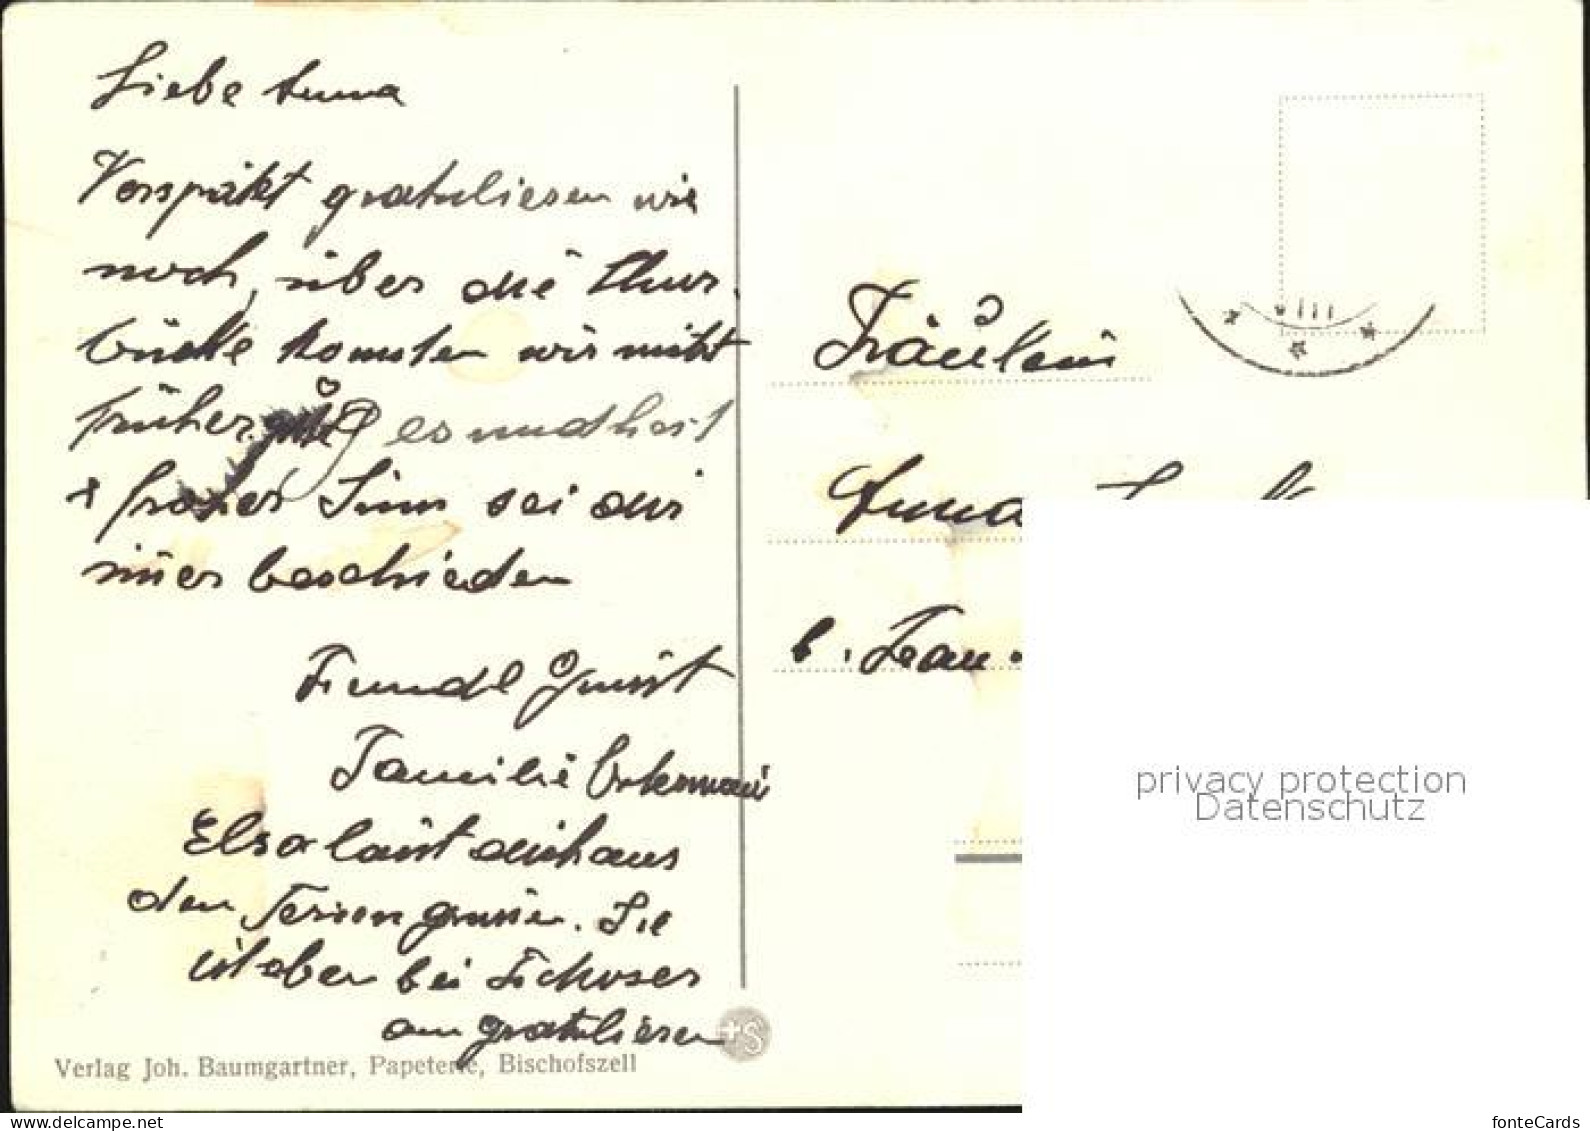 Liebe Anna
Verspätet gratulieren wir
noch, über die Thur.
brücke konnten wir nicht
früher. gute Gesundheit
+ froher Sinn sei dir
beschieden
Freundl Grüsst
Familie
Elsa lässt dich aus
den Ferien grüssen. Sie
ist eben bei
am gratulieren
Verlag Joh. Baumgartner, Papeterie, Bischofszell
+S
Fräulein
Anna
b. Frau.
privacy protection
Datenschutz
www.delcampe.net
fonteCards